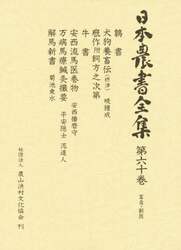 日本農書全集
第六十巻
畜産・獣医
鶉書
犬狗養畜伝 暁鐘成
廐作附飼方之次第
牛書
安西流馬医巻物 安西播磨守
万病馬療鍼灸撮要 平安隠士 泥道人
解馬新書 菊池東水
社団法人 農山漁村文化協会 刊